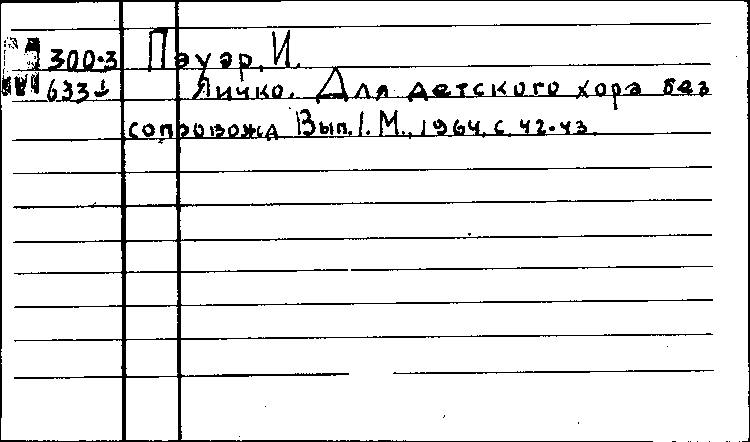 300-3 Пауэр, И.
633 Яичко. Для детского хора без
сопровожд Вып. 1. М., 1964, с. 42-43.